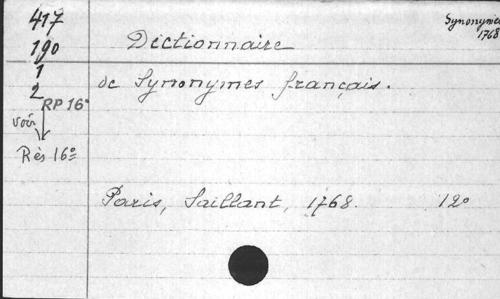 417
190
1
2
RP 16°
voir
Rés 16°
Synonymes
1768
Dictionnaire
de Synonymes français.
Paris, Saillant, 1768. 12°